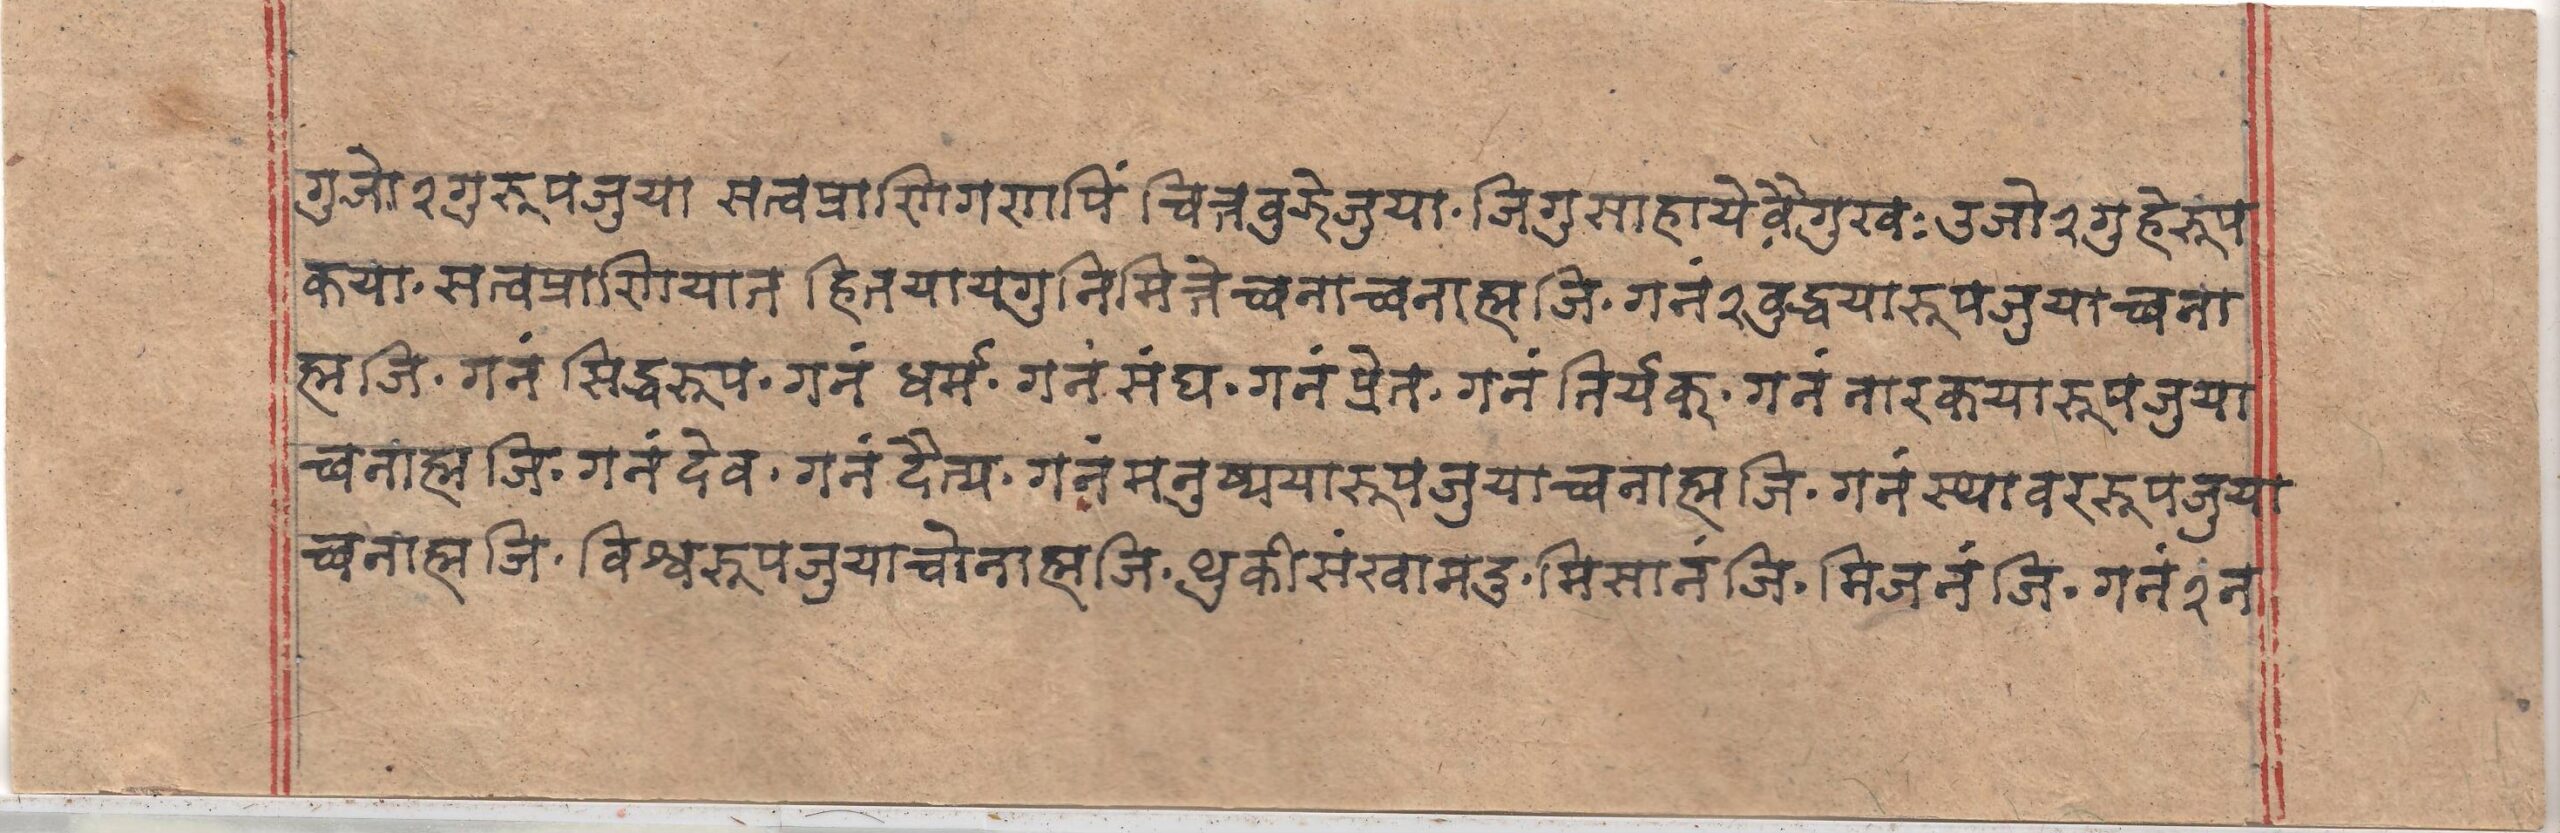 गुजो२गुरूपजुया सत्वप्राणिगणपिं चित्तबुझेजुया· जिगुसाहायेवैगुखः उजो२गुहेरूप
कया· सत्वप्राणियात हितयायगुनिमित्तेच्वनाच्वनाह्म जि· गनं२बुद्धयारूपजुयाच्वना
ह्म जि· गनं सिद्धरूप· गनं धर्म· गनं संघ· गनं प्रेत· गनं तिर्यक्· गनं नारकयारूपजुया
च्वनाह्म जि· गनं देव· गनं दैत्य· गनं मनुष्ययारूपजुयाच्वनाह्म जि· गनं स्थावररूपजुया
च्वनाह्म जि· विश्वरूपजुयाचोनाह्म जि· थुकीसंखामदु· मिसानं जि· मिजनं जि· गनं२न